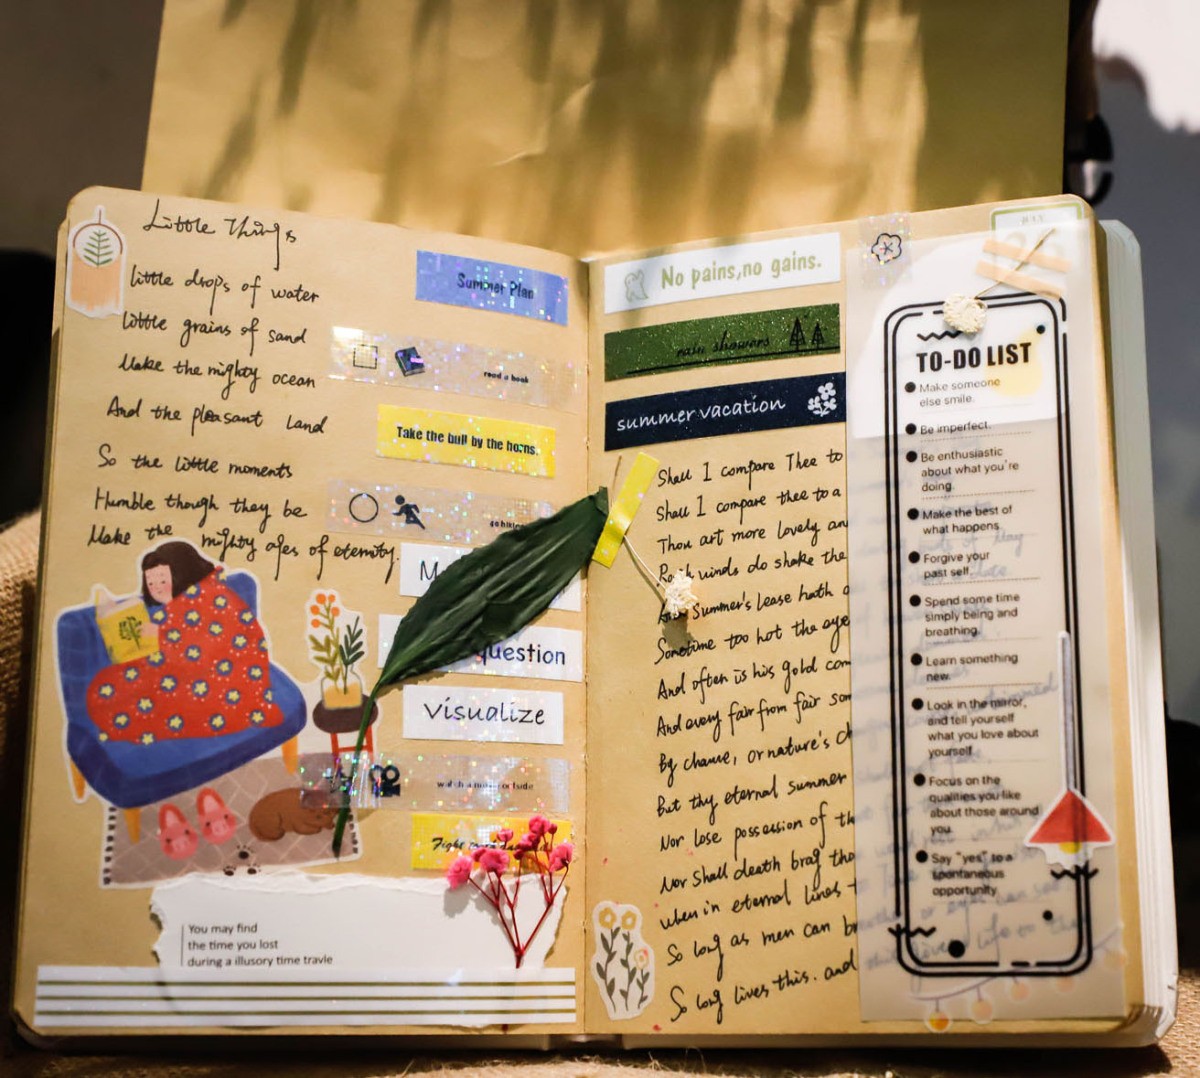 Little Things
little drops of water
little grains of sand
Make the mighty ocean
And the pleasant Land
So the little moments
Humble though they be
Make the mighty ages of eternity.
Summer Plan
read a book
Take the bull by the horns.
go hiking
question
Visualize
Fight
You may find
the time you lost
during a illusory time travle
No pains,no gains.
rain showers
summer vacation
Shall I compare Thee to
Shall I compare thee to a
Thou art more lovely an
Rough winds do shake the
And Summer's Lease hath a
Sometime too hot the eye
And often is his gold com
And every fair from fair som
By chance, or nature's ch
But thy eternal summer
Nor lose possession of th
Nor shall death brag tho
when in eternal lines t
So long as men can br
So long lives this. and
JULY
26
TO-DO LIST
Make someone
else smile.
Be imperfect.
Be enthusiastic
about what you're
doing.
Make the best of
what happens
Forgive your
past self.
Spend some time
simply being and
breathing.
Learn something
new.
Look in the mirror,
and tell yourself
what you love about
yourself.
Focus on the
qualities you like
about those around
you.
Say "yes" to a
spontaneous
opportunity